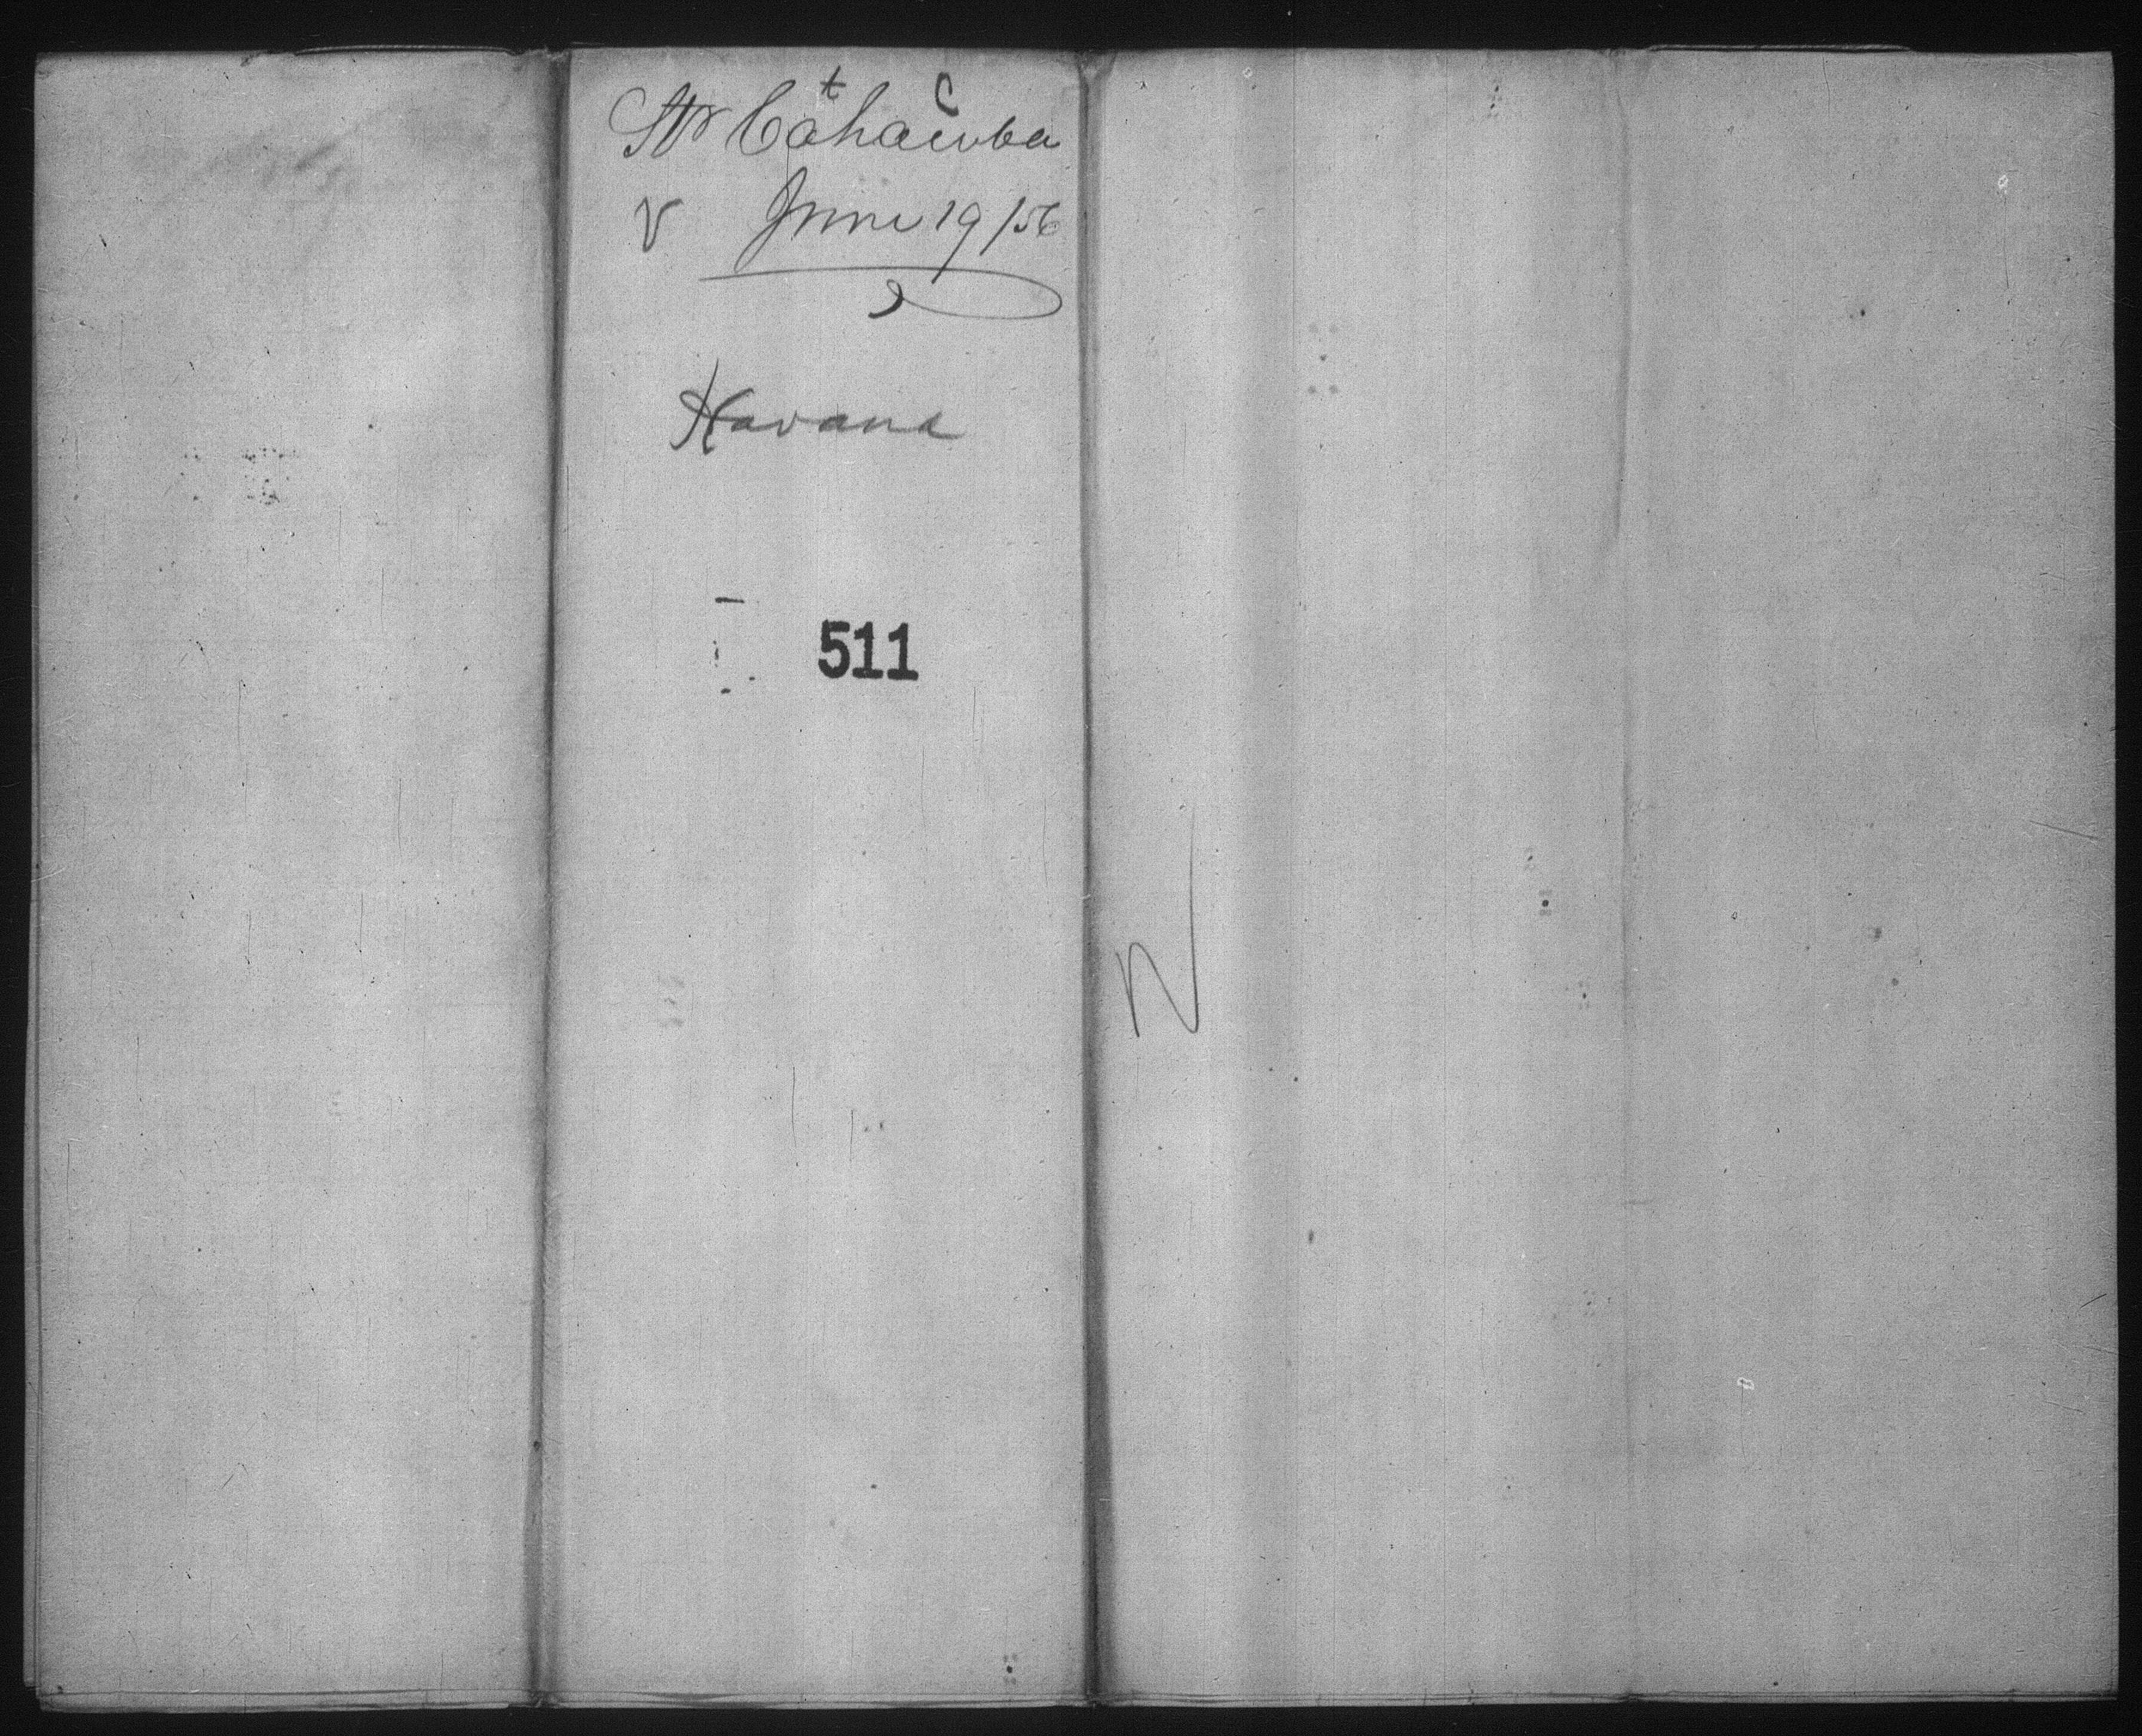 t C
Str Cahawba
V June 19/56
Havana
511
N